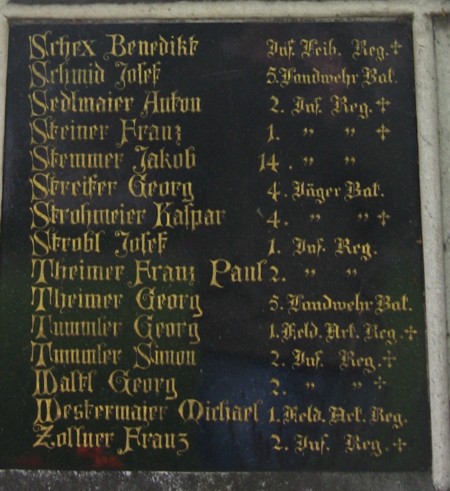 Schex Benedikt Inf. Leib. Reg. ✝
Schmid Josef 5. Landwehr Bat.
Sedlmaier Anton 2. Inf. Reg. ✝
Steiner Franz 1. " " ✝
Stemmer Jakob 14. " "
Streifer Georg 4. Jäger Bat.
Strohmeier Kaspar 4. " " ✝
Strobl Josef 1. Inf. Reg.
Theimer Franz Paul 2. " "
Theimer Georg 5. Landwehr Bat.
Tummler Georg 1. Feld. Art. Reg. ✝
Tummler Simon 2. Inf. Reg. ✝
Waltl Georg 2. " " ✝
Westermaier Michael 1. Feld. Art. Reg.
Zollner Franz 2. Inf. Reg. ✝